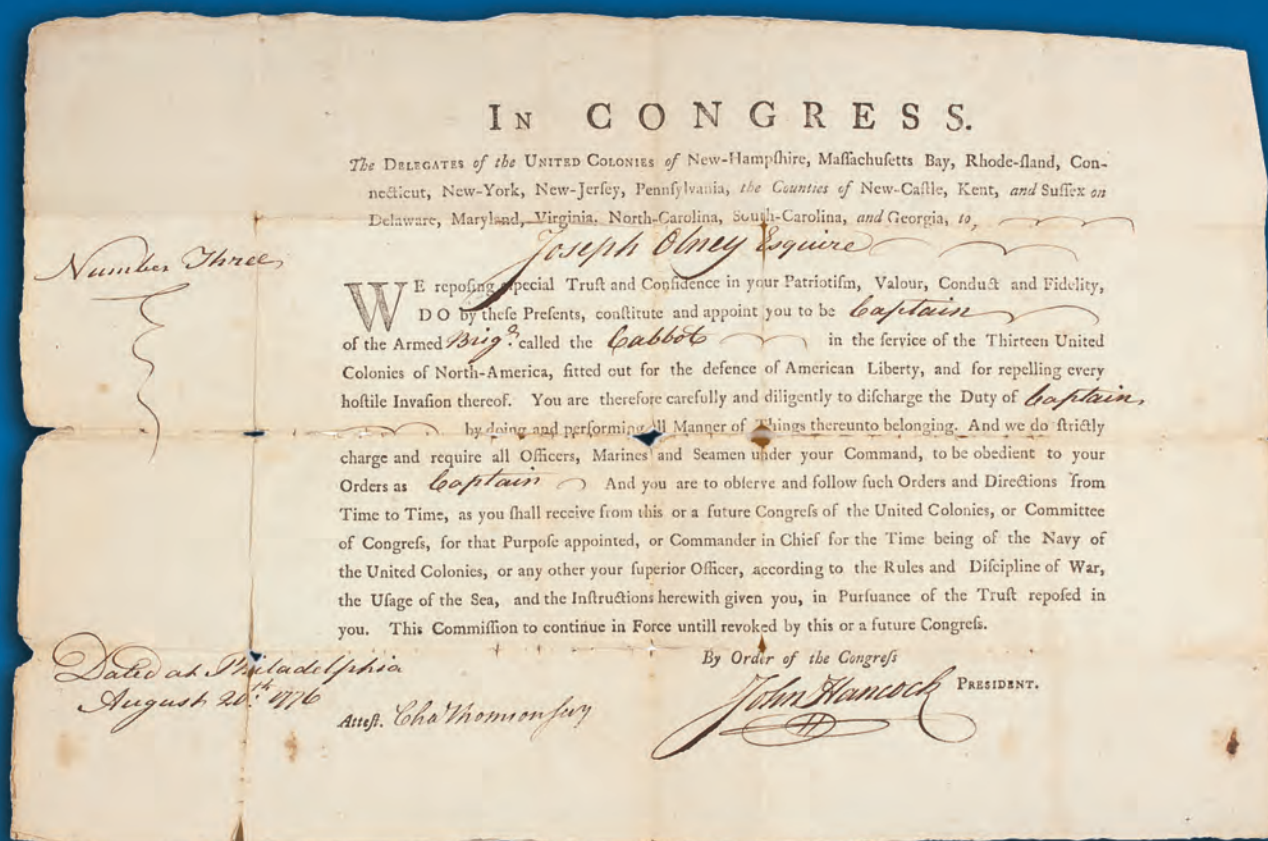 IN CONGRESS.
The DELEGATES of the UNITED COLONIES of New-Hampſhire, Maſſachuſetts Bay, Rhode-ſland, Con-
necticut, New-York, New-Jerſey, Pennſylvania, the Counties of New-Caſtle, Kent, and Suſſex on
Delaware, Maryland, Virginia, North-Carolina, South-Carolina, and Georgia, to,
Joseph Olney Esquire
Number Three
WE repoſing eſpecial Truſt and Confidence in your Patriotiſm, Valour, Conduct and Fidelity,
DO by theſe Preſents, conſtitute and appoint you to be Captain
of the Armed Brig.e called the Cabbot in the ſervice of the Thirteen United
Colonies of North-America, fitted out for the defence of American Liberty, and for repelling every
hoſtile Invaſion thereof. You are therefore carefully and diligently to diſcharge the Duty of Captain
by doing and performing all Manner of Things thereunto belonging. And we do ſtrictly
charge and require all Officers, Marines and Seamen under your Command, to be obedient to your
Orders as Captain And you are to obſerve and follow ſuch Orders and Directions from
Time to Time, as you ſhall receive from this or a future Congreſs of the United Colonies, or Committee
of Congreſs, for that Purpoſe appointed, or Commander in Chief for the Time being of the Navy of
the United Colonies, or any other your ſuperior Officer, according to the Rules and Diſcipline of War,
the Uſage of the Sea, and the Inſtructions herewith given you, in Purſuance of the Truſt repoſed in
you. This Commiſſion to continue in Force untill revoked by this or a future Congreſs.
By Order of the Congreſs
John Hancock PRESIDENT.
Dated at Philadelphia
August 20th. 1776
Atteſt. Cha Thomson ſecy